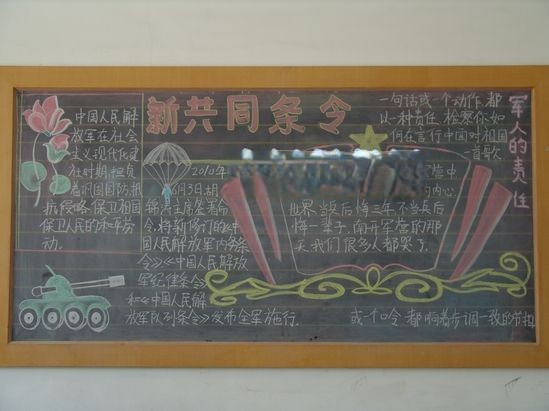 新共同条令
中国人民解
放军在社会
主义现代化建
设时期,担负
着巩固国防,抵
抗侵略,保卫祖国
保卫人民的和平劳
动。
2010年
6月3日,胡
锦涛主席签署命
令,将新修订的《中
国人民解放军内务条
令》《中国人民解放
军纪律条令》
和《中国人民解
放军队列条令》发布全军施行。
一句话或一个动作,都
以一种责任,检察你如
何在言行中国对祖国
首歌
军人的责任
营中
的内心
世界,当兵后悔三年,不当兵后
悔一辈子,离开军营的那
天我们很多人都哭了。
或一个口令,都响着步调一致的节拍